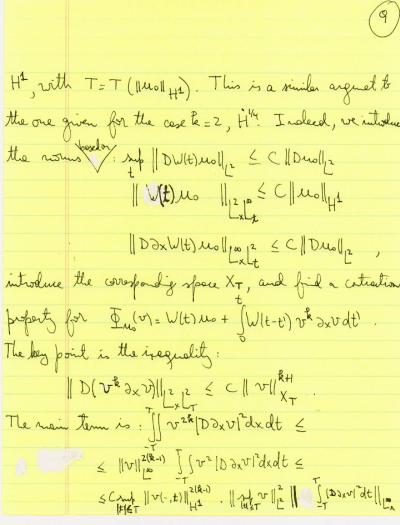 9
H¹, with T = T(‖u₀‖_{H¹}). This is a similar argument to
the one given for the case k = 2, Ḣ^{1/4}. Indeed, we introduce
the norms based on : sup_t ‖DW(t)u₀‖_{L²} ≤ C‖Du₀‖_{L²}
‖W(t)u₀‖_{L²_x L^∞_t} ≤ C‖u₀‖_{H¹}
‖D∂ₓW(t)u₀‖_{L^∞_x L²_t} ≤ C‖Du₀‖_{L²} ,
introduce the corresponding space X_T, and find a contraction
property for Φ_{u₀}(v) = W(t)u₀ + ∫₀ᵗ W(t-t') v^k ∂ₓv dt' .
The key point is the inequality :
‖D(v^k ∂ₓv)‖_{L²_x L²_T} ≤ C‖v‖^{k+1}_{X_T} .
The main term is : ∫_{-T}^{T}∫ v^{2k} |D∂ₓv|² dx dt ≤
≤ ‖v‖^{2(k-1)}_{L^∞} ∫_{-T}^{T}∫ v² |D∂ₓv|² dx dt ≤
≤ C sup_{|t|≤T} ‖v(-,t)‖^{2(k-1)}_{H¹} . ‖sup_{|t|≤T} v‖²_{L²} ‖∫_{-T}^{T} |D∂ₓv|² dt‖_{L^∞_x}